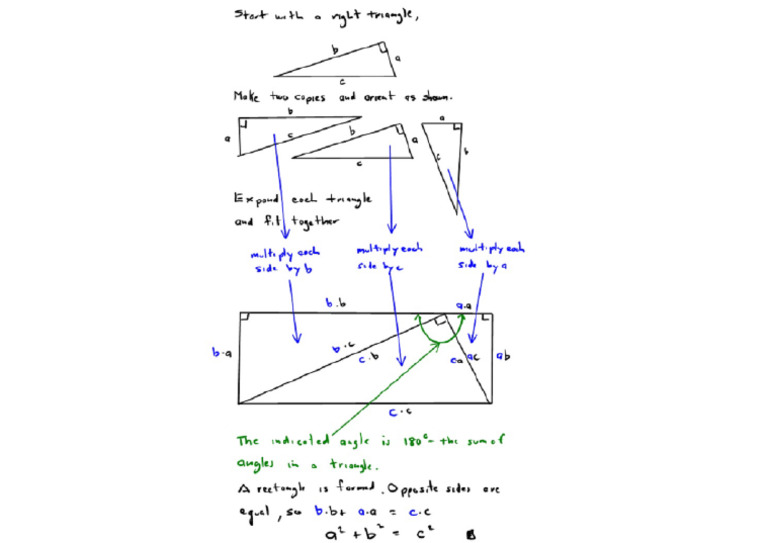 Start with a right triangle,
b
a
c
Make two copies and orient as shown.
b
a
c
b
a
c
a
b
c
Expand each triangle
and fit together
multiply each
side by b
multiply each
side by c
multiply each
side by a
b.b
a.a
b.a
b.c
c.b
ca
ac
ab
c.c
The indicated angle is 180° - the sum of
angles in a triangle.
A rectangle is formed. Opposite sides are
equal, so b.b+ a.a = c.c
a² + b² = c²